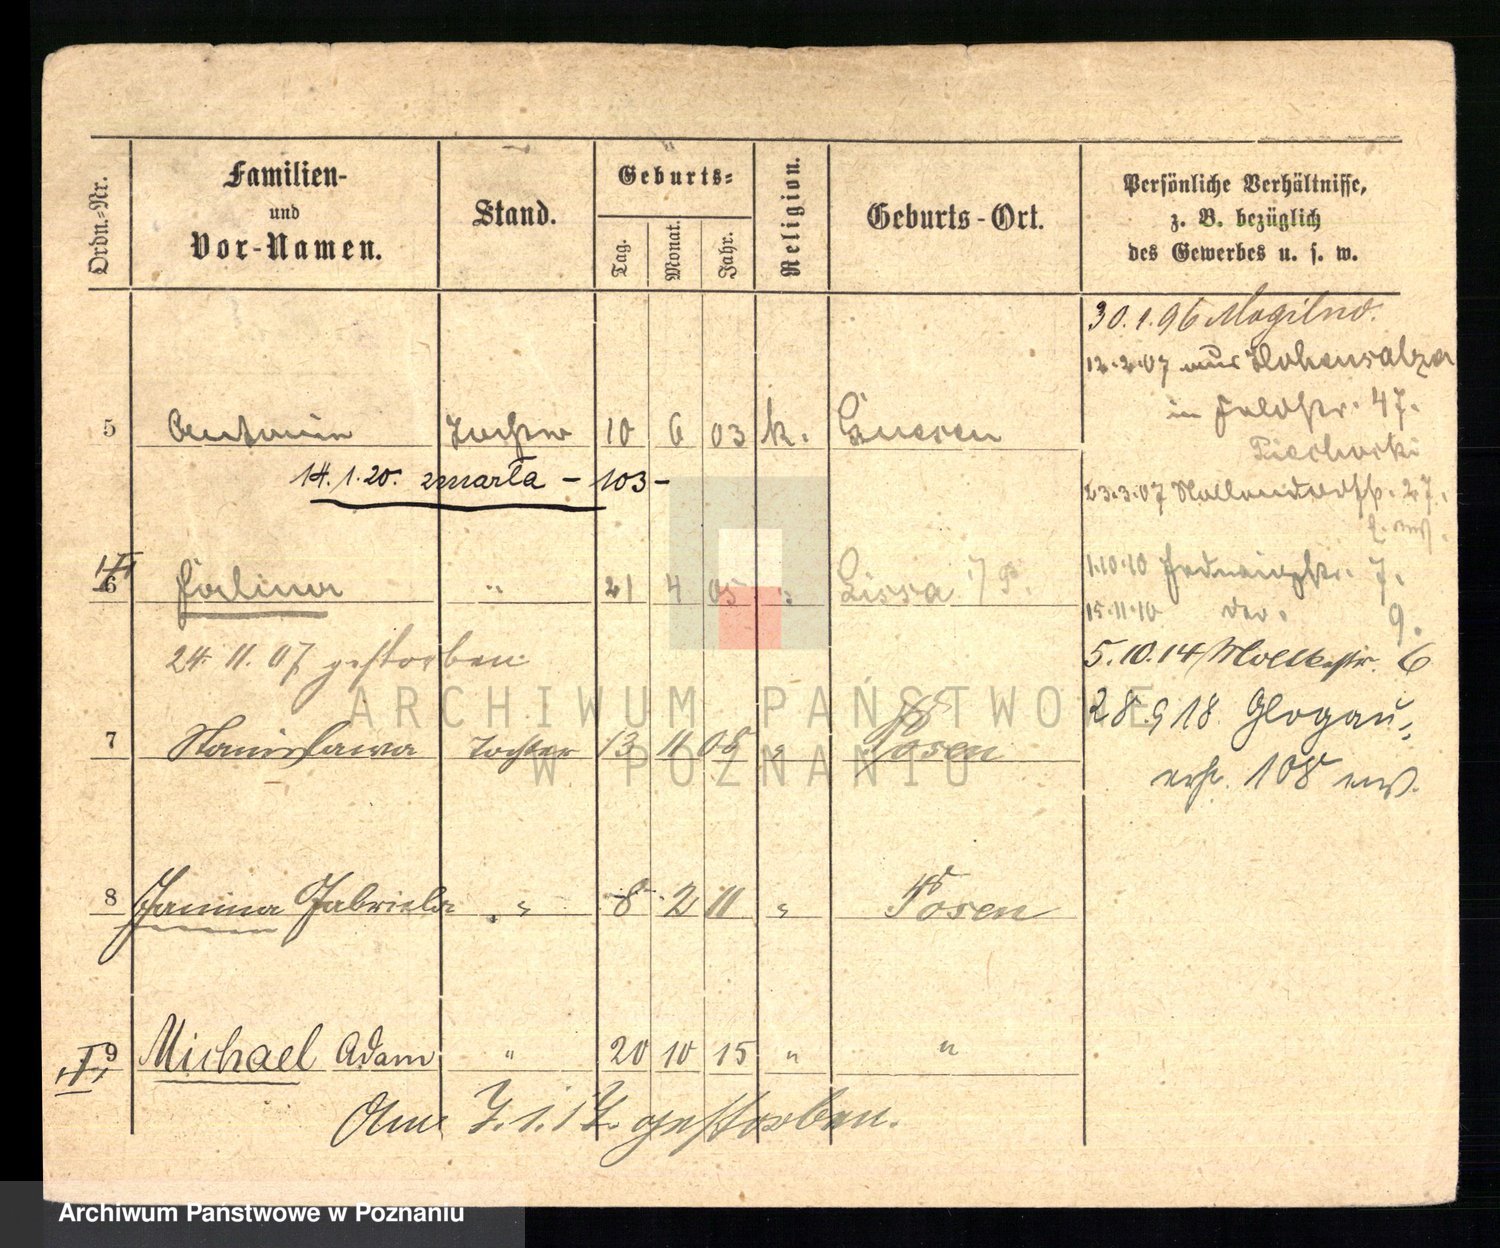 Ordn.-Nr.
Familien-
und
Vor-Namen.
Stand.
Geburts-
Tag.
Monat.
Jahr.
Religion.
Geburts-Ort.
Persönliche Verhältnisse,
z. B. bezüglich
des Gewerbes u. s. w.
30.1.96 Mogilno.
12.2.07 aus Hohensalza
in Feldstr. 47.
5 Antonie Tochter 10 6 03 k. Gnesen
Piechocki
14.1.20. zmarła - 103 -
23.3.07 Hollendorffstr. 27.
6 Halina " 21 4 05 " Lissa i/P.
1.10.10 Hedwigstr. 7.
15.11.10 9.
24. 11. 07 gestorben.
5.10.14 Moltkestr. 6
28.9 18 Glogau,
7 Stanislawa Tochter 13 11 08 " Posen
108
8 Janina Gabriela " 8 2 11 " Posen
9 Michael Adam " 20 10 15 " "
Am 7.1.17. gestorben.
ARCHIWUM PAŃSTWOWE
W POZNANIU
Archiwum Państwowe w Poznaniu